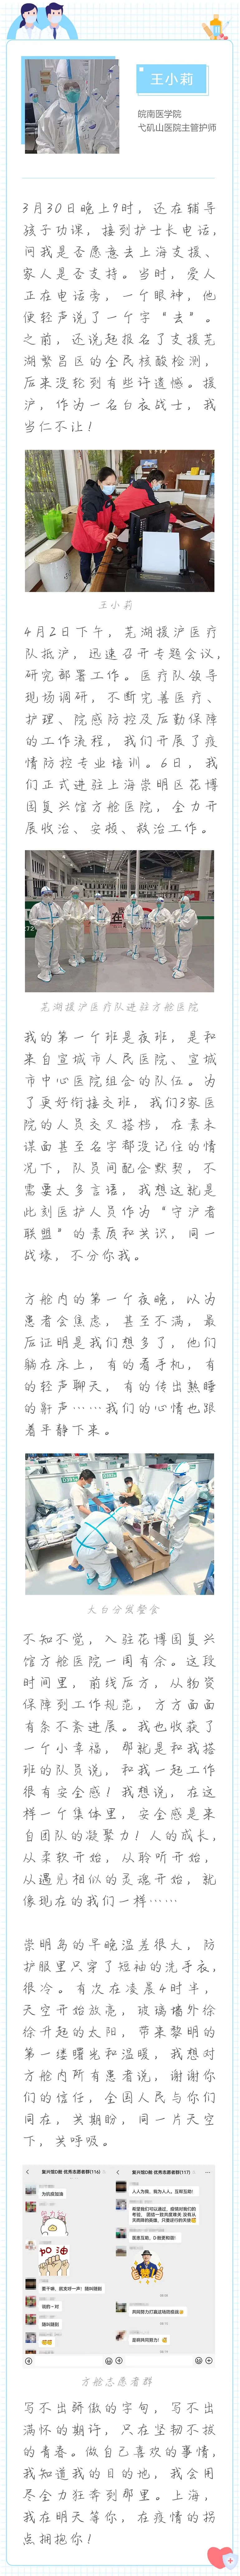 王小莉
皖南医学院
弋矶山医院主管护师
3月30日晚上9时，还在辅导
孩子功课，接到护士长电话，
问我是否愿意去上海支援、
家人是否支持。当时，爱人
正在电话旁，一个眼神，他
便轻声说了一个字“去”。
之前，还说起报名了支援芜
湖繁昌区的全民核酸检测，
后来没轮到有些许遗憾。援
沪，作为一名白衣战士，我
当仁不让！
王小莉
4月2日下午，芜湖援沪医疗
队抵沪，迅速召开专题会议，
研究部署工作。医疗队领导
现场调研，不断完善医疗、
护理、院感防控及后勤保障
的工作流程，我们开展了疫
情防控专业培训。6日，我
们正式进驻上海崇明区花博
园复兴馆方舱医院，全力开
展收治、安顿、救治工作。
芜湖援沪医疗队进驻方舱医院
我的第一个班是夜班，是和
来自宣城市人民医院、宣城
市中心医院组合的队伍。为
了更好衔接交班，我们3家医
院的人员交叉搭档，在素未
谋面甚至名字都没记住的情
况下，队员间配合默契，不
需要太多言语，我想这就是
此刻医护人员作为“守沪者
联盟”的素质和共识，同一
战壕，不分你我。
方舱内的第一个夜晚，以为
患者会焦虑，甚至不满，最
后证明是我们想多了，他们
躺在床上，有的看手机，有
的轻声聊天，有的传出熟睡
的鼾声……我们的心情也跟
着平静下来。
大白分发餐食
不知不觉，入驻花博园复兴
馆方舱医院一周有余。这段
时间里，前线后方，从物资
保障到工作规范，方方面面
有条不紊进展。我也收获了
一个小幸福，那就是和我搭
班的队员说，和我一起工作
很有安全感！我想说，在这
样一个集体里，安全感是来
自团队的凝聚力！人的成长，
从柔软开始，从聆听开始，
从遇见相似的灵魂开始，就
像现在的我们一样……
崇明岛的早晚温差很大，防
护服里只穿了短袖的洗手衣，
很冷。有次在凌晨4时半，
天空开始放亮，玻璃墙外徐
徐升起的太阳，带来黎明的
第一缕曙光和温暖，我想对
方舱内所有患者说，谢谢你
们的信任，全国人民与你们
同在，共期盼，同一片天空
下，共呼吸。
复兴馆D舱·优秀志愿者群(116)
为抗疫加油
加油
要干嘛，就支吵一声！随叫随到
他的一对
随叫随到
复兴馆D舱·优秀志愿者群(117)
人人为我，我为人人，互帮互助！
医患互助，D舱更和谐！
共同努力打赢这场防疫战
是啊共同努力！
方舱志愿者群
写不出骄傲的字句，写不出
满怀的期许，只在坚韧不拔
的青春。做自己喜欢的事情，
我知道我的目的地，我会用
尽全力狂奔到那里。上海，
我在明天等你，在疫情的拐
点拥抱你！